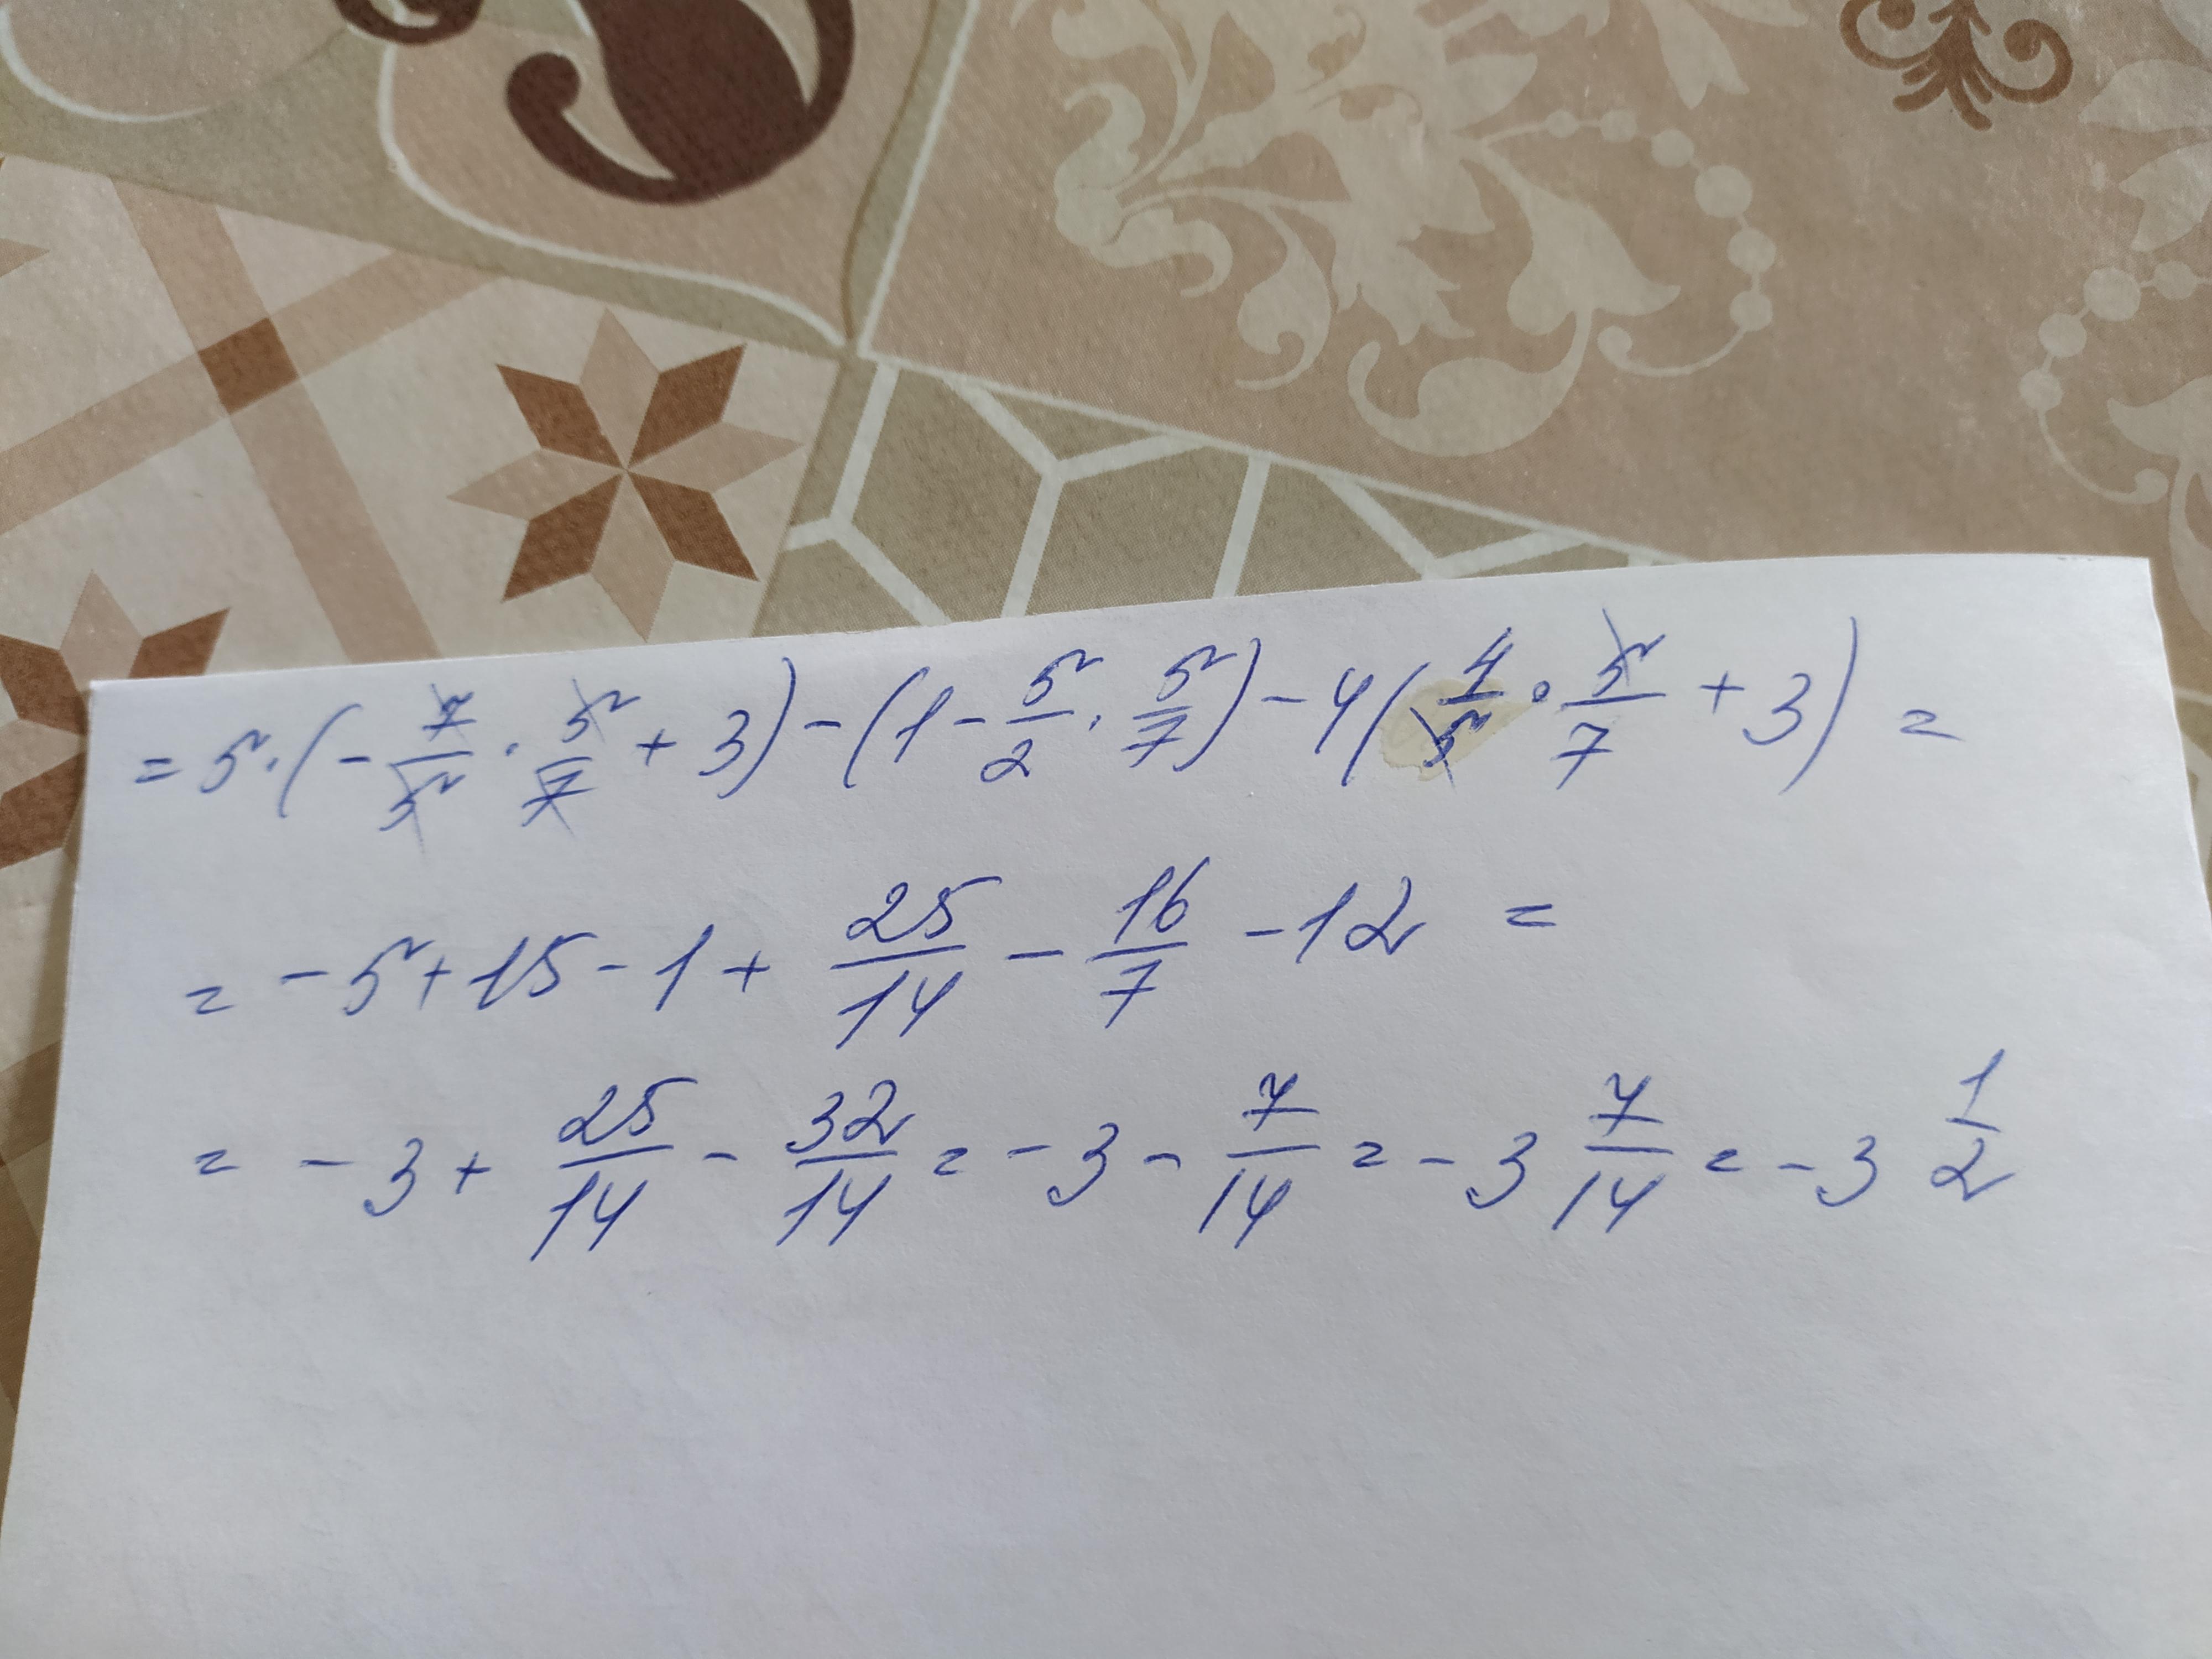 = 5·(-7/5 · 5/7 + 3) - (1 - 5/2 · 5/7) - 4(4/5 · 5/7 + 3) =
= -5 + 15 - 1 + 25/14 - 16/7 - 12 =
= -3 + 25/14 - 32/14 = -3 - 7/14 = -3 7/14 = -3 1/2